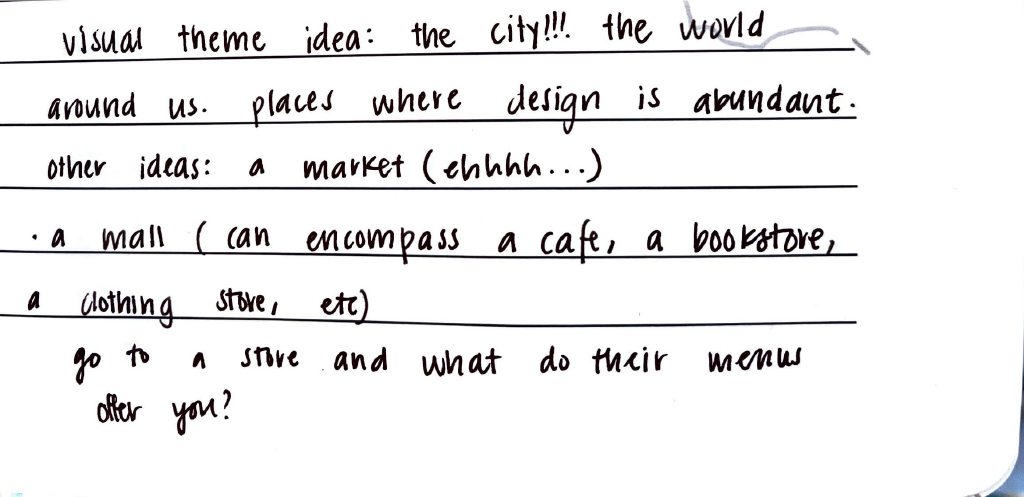 visual theme idea: the city!!! the world
around us. places where design is abundant.
other ideas: a market (ehhhh...)
· a mall ( can encompass a cafe, a bookstore,
a clothing store, etc)
go to a store and what do their menus
offer you?